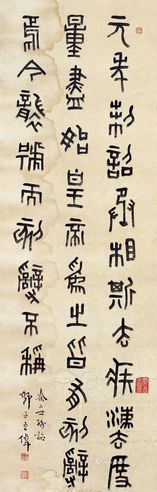 元年制詔丞相斯去疾灋度
量盡始皇帝爲之皆有刻辭
焉今襲號而刻辭不稱
秦二世詔